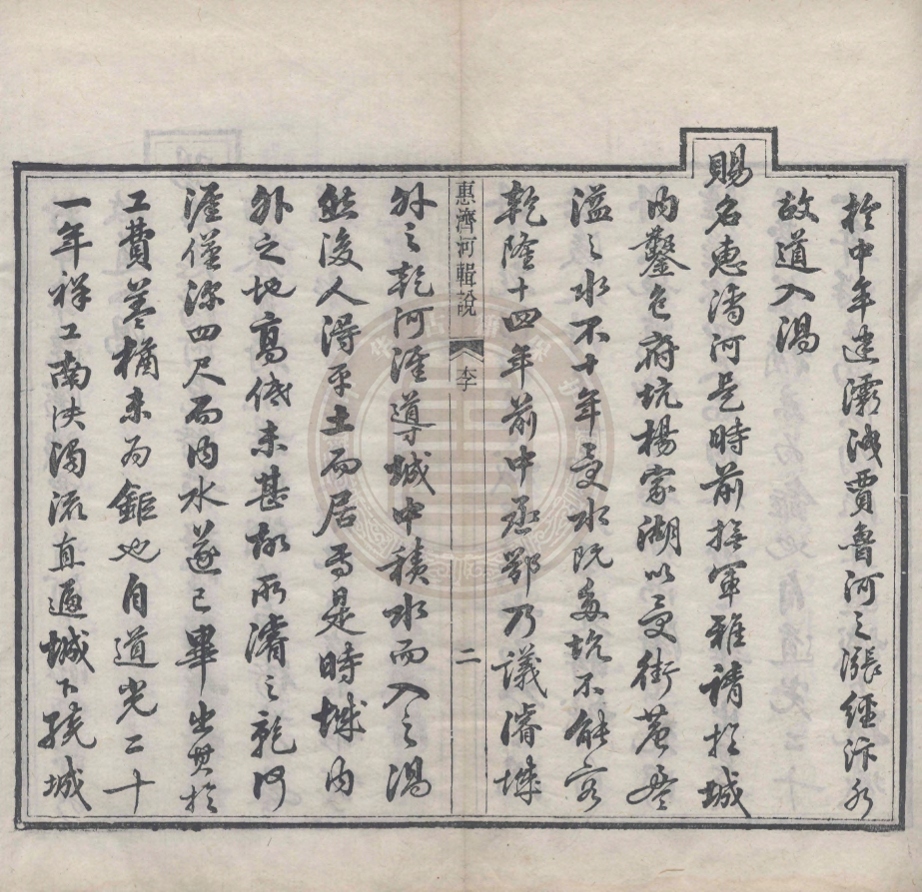 於中牟建灞洩賈魯河之漲經汴水
故道入渦
賜名惠濟河是時前撫軍雅請於城
内鑿包府坑楊家湖以受街巷
溢之水不十年受水既多坑不能容
乾隆十四年前中丞鄂乃議濬城
惠濟河輯說 李 二
外之乾河涯導城中積水而入之渦
然後人得平土而居焉是時城内
外之地高低未甚故所濬之乾河
涯僅深四尺而内水遂已畢出其於
工費蓋猶未為鉅也自道光二十
一年祥工南決濁流直逼城下繞城